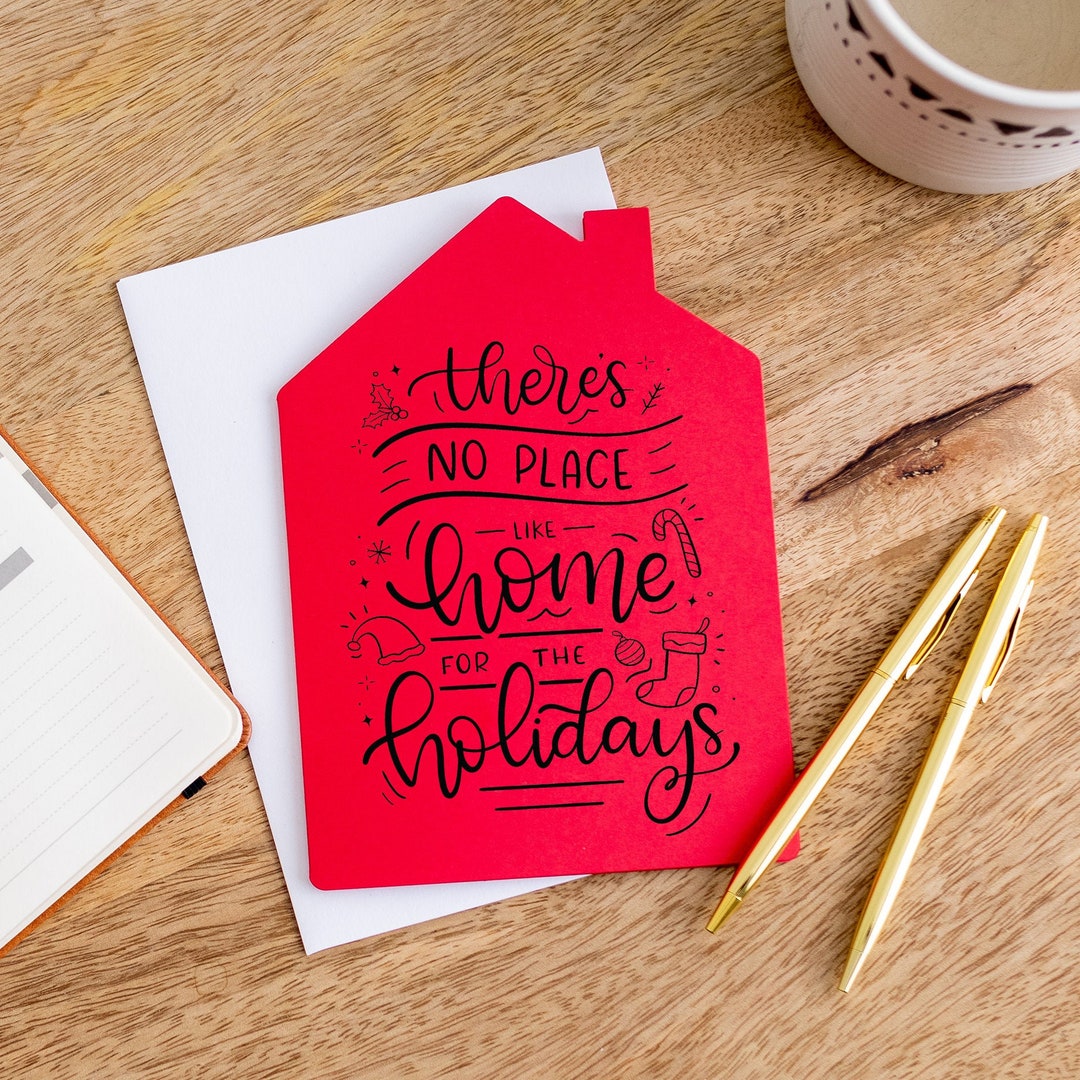 there's
NO PLACE
LIKE
home
FOR THE
holidays